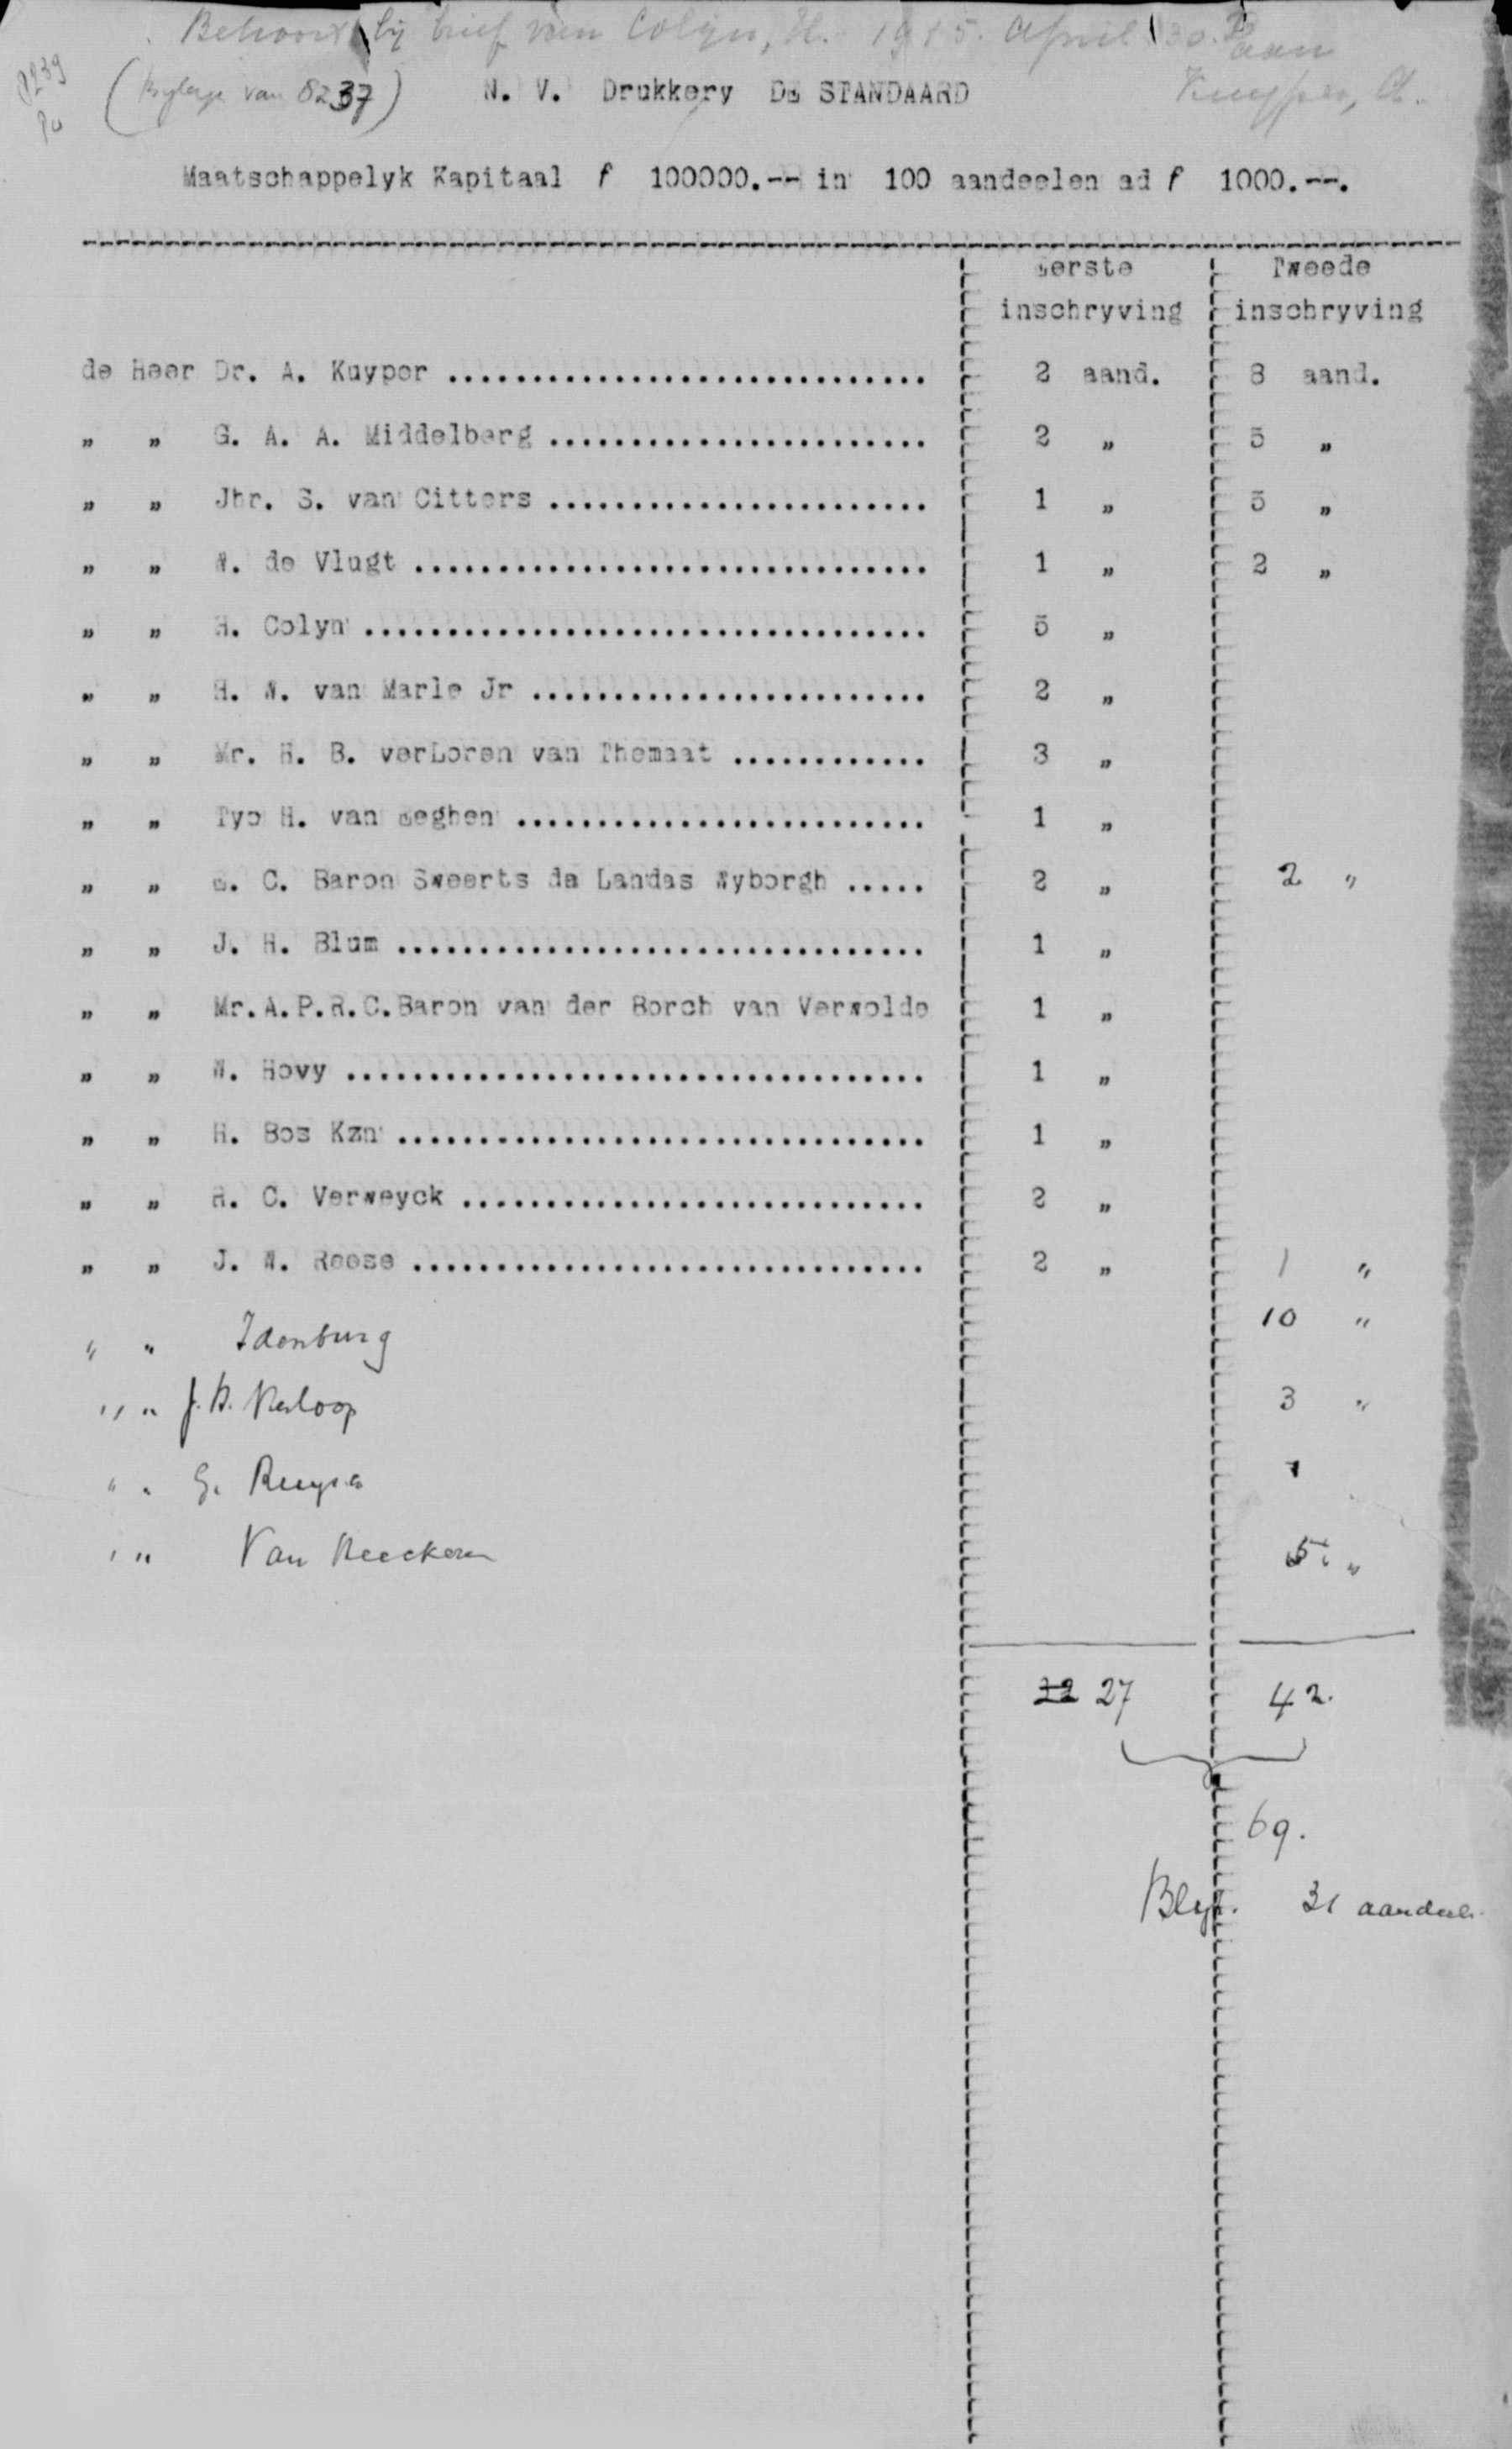 Behoort bij brief van Colijn, H. 1915. April 30. aan
8239
(Bylage van 8237) N. V. Drukkery DE STANDAARD Kuyper, A.
Maatschappelyk Kapitaal f 100000.-- in 100 aandeelen ad f 1000.--.
Eerste Tweede
inschryving inschryving
de Heer Dr. A. Kuyper ............................. 2 aand. 8 aand.
„ „ G. A. A. Middelberg ....................... 2 „ 5 „
„ „ Jhr. S. van Citters ....................... 1 „ 5 „
„ „ W. de Vlugt ............................... 1 „ 2 „
„ „ H. Colyn .................................. 5 „
„ „ H. W. van Marle Jr ........................ 2 „
„ „ Mr. H. B. verLoren van Themaat ............ 3 „
„ „ Tyo H. van Eeghen ......................... 1 „
„ „ E. C. Baron Sweerts de Landas Wyborgh ..... 2 „ 2 „
„ „ J. H. Blum ................................ 1 „
„ „ Mr.A.P.R.C.Baron van der Borch van Verwolde 1 „
„ „ W. Hovy ................................... 1 „
„ „ H. Bos Kzn ................................ 1 „
„ „ R. C. Verweyck ............................ 2 „
„ „ J. W. Reese ............................... 2 „ 1 „
„ „ Idenburg 10 „
„ „ Verloop 3 „
„ „ G. Ruys 1
„ „ Van Heeckeren 5 „
22 27 42.
69.
Blyft. 31 aandeel.